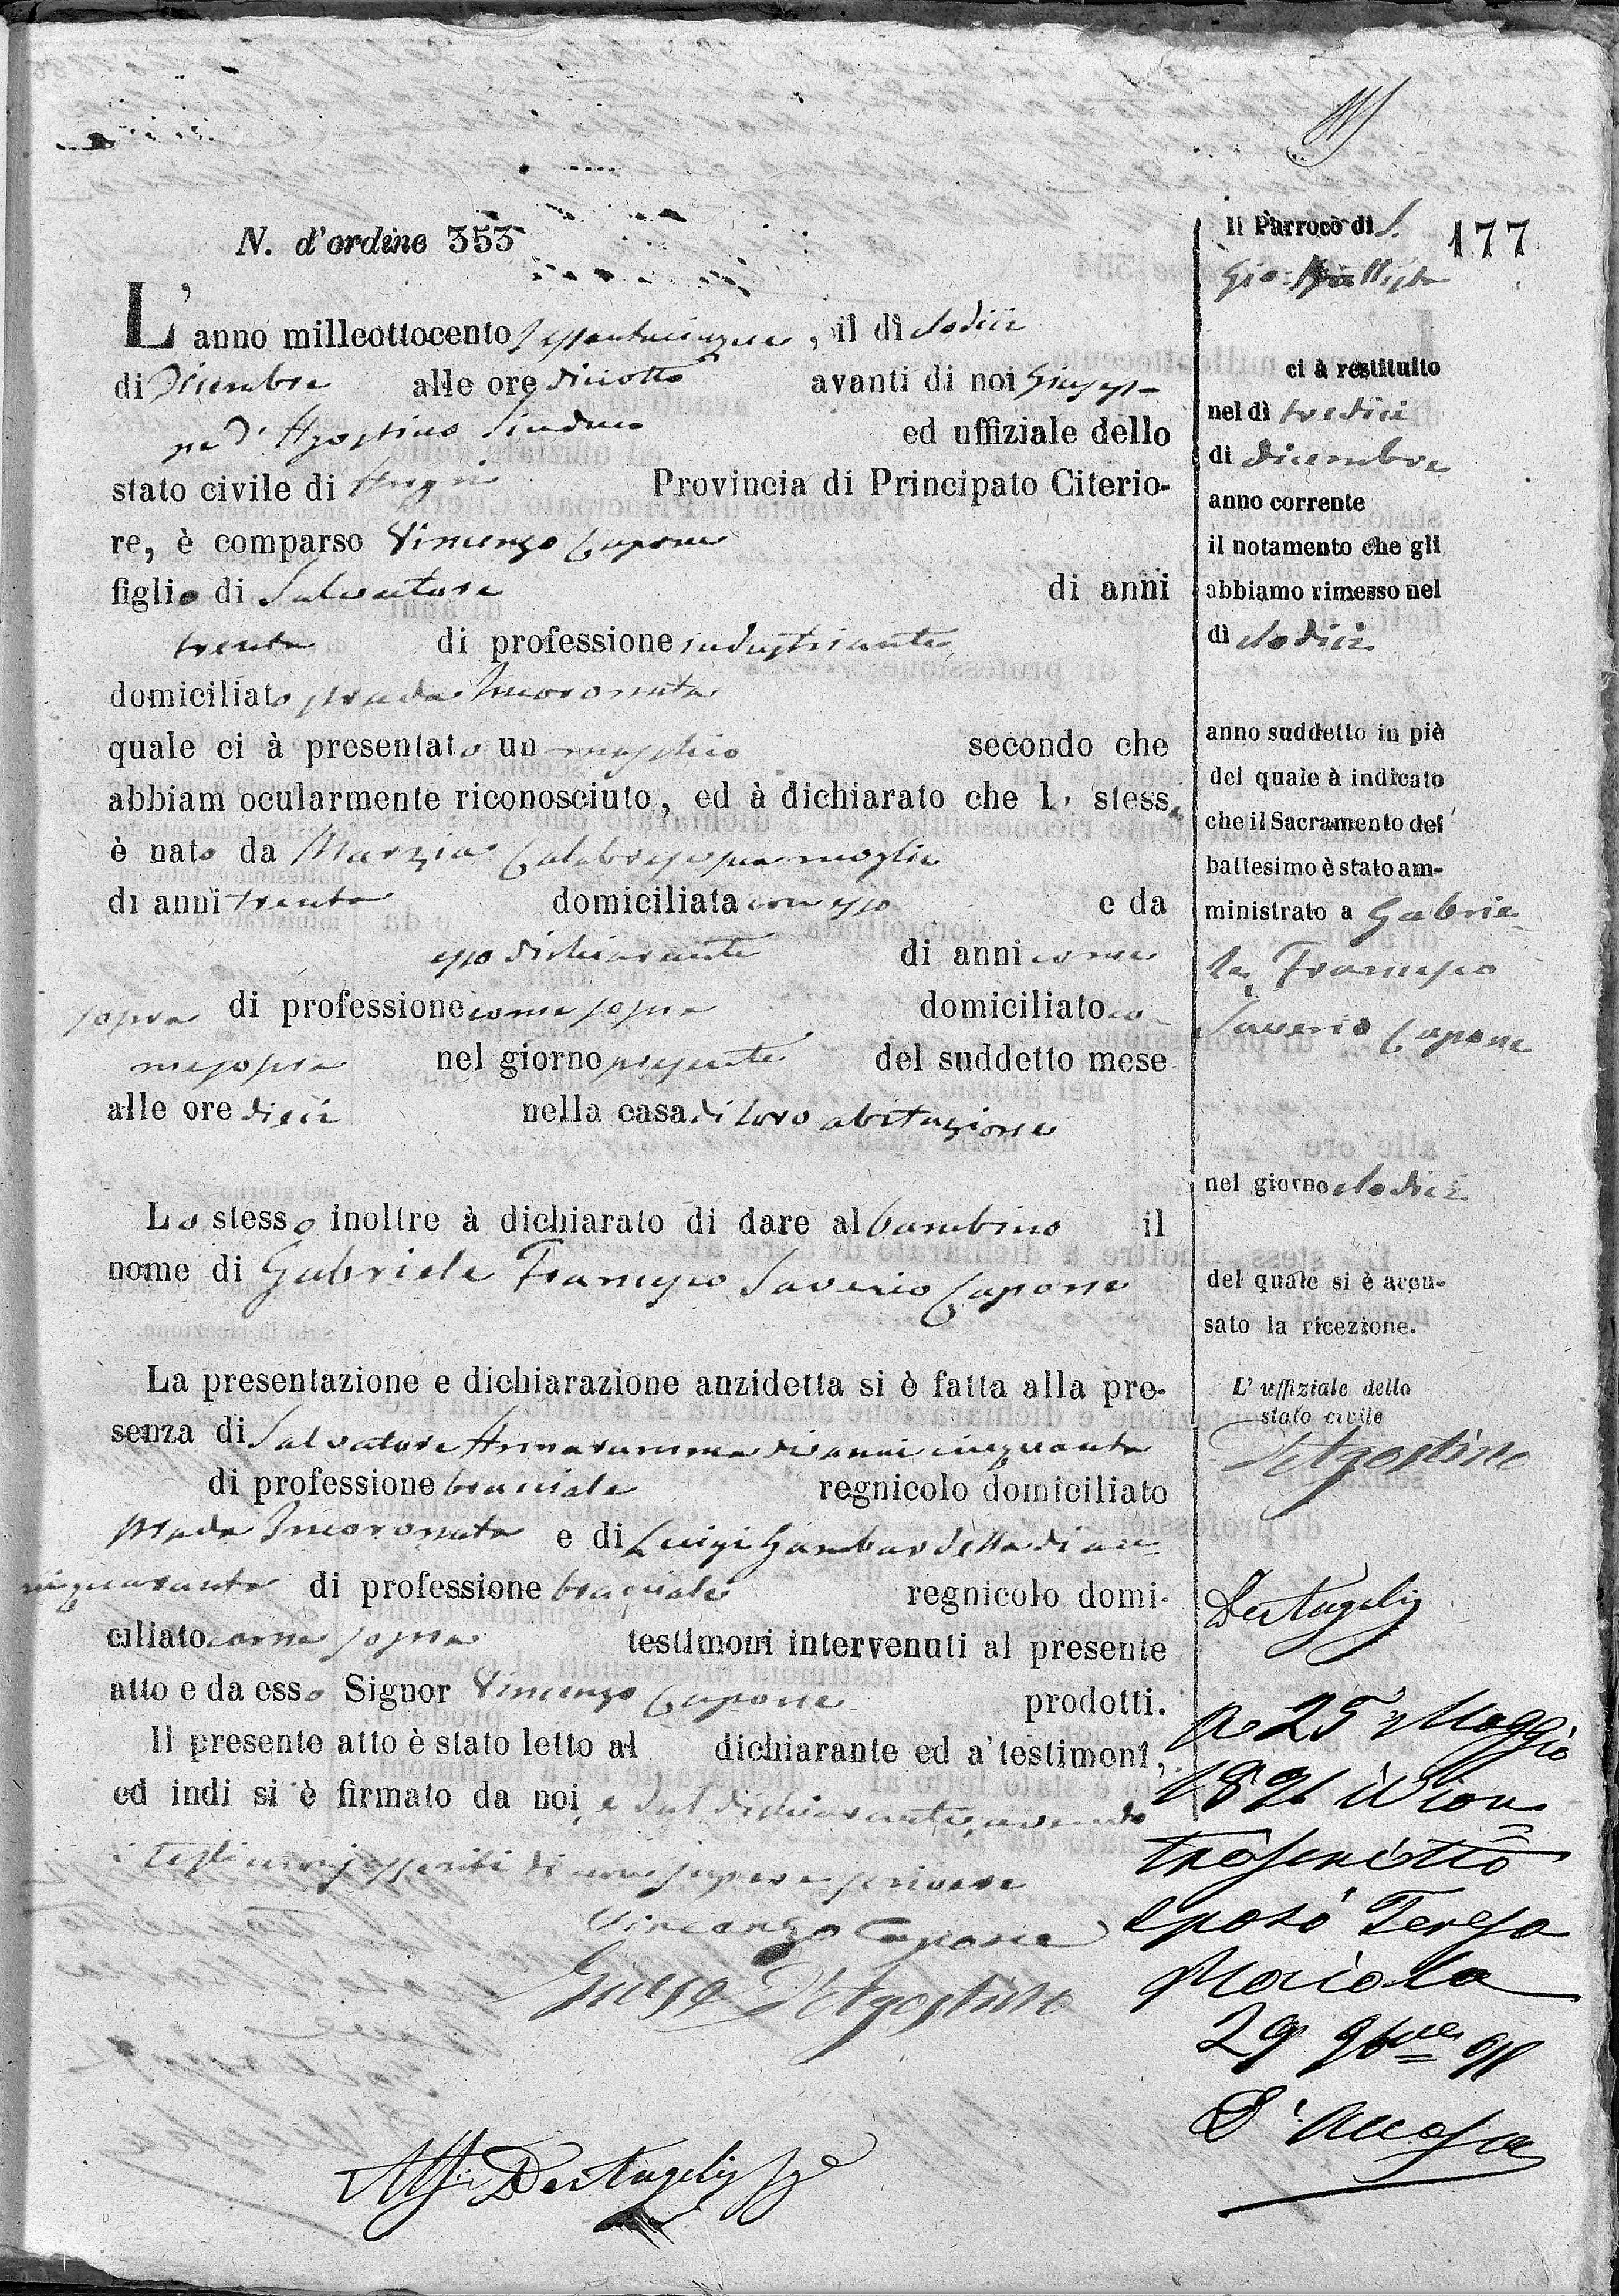 N. d'ordine 353
L'anno milleottocento sessantacinque, il dì dodici
di Dicembre alle ore diciotto avanti di noi Giusep-
pe D'Agostino Sindaco ed uffiziale dello
stato civile di Angri Provincia di Principato Citerio-
re, è comparso Vincenzo Capone
figlio di Salvatore di anni
trenta di professione industriante
domiciliato strada Incoronata
quale ci à presentato un maschio secondo che
abbiam ocularmente riconosciuto, ed à dichiarato che lo stesso
è nato da Marzia Calabrese sua moglie
di anni trenta domiciliata con esso e da
esso dichiarante di anni come
sopra di professione come sopra domiciliato co-
me sopra nel giorno presente del suddetto mese
alle ore dieci nella casa di loro abitazione
Lo stesso inoltre à dichiarato di dare al bambino il
nome di Gabriele Francesco Saverio Capone
La presentazione e dichiarazione anzidetta si è fatta alla pre-
senza di Salvatore Annarumma di anni cinquanta
di professione bracciale regnicolo domiciliato
strada Incoronata e di Luigi Gambardella di an-
ni quaranta di professione bracciale regnicolo domi-
ciliato come sopra testimoni intervenuti al presente
atto e da esso Signor Vincenzo Capone prodotti.
Il presente atto è stato letto al dichiarante ed a' testimoni,
ed indi si è firmato da noi, e dal dichiarante, avendo
i testimonj asseriti di non sapere scrivere
Vincenzo Capone
Giuseppe D'Agostino
177
Il Parroco di S.
Gio: Battista
ci à restituito
nel dì tredici
di dicembre
anno corrente
il notamento che gli
abbiamo rimesso nel
dì dodici
anno suddetto in piè
del quale à indicato
che il Sacramento del
battesimo è stato am-
ministrato a Gabrie-
le Francesco
Saverio Capone
nel giorno dodici
del quale si è accu-
sato la ricezione.
L'uffiziale dello
stato civile
D'Agostino
25 Maggio
189
trascritto
sposò Teresa
29 9bre 91